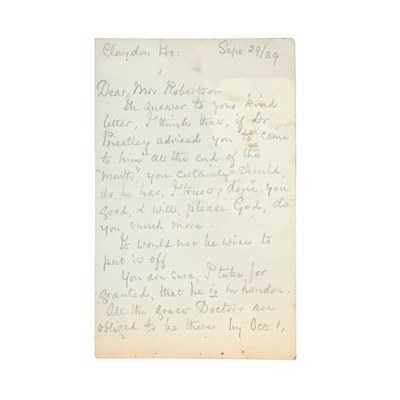 Claydon Ho: Sept 29/89
Dear Mrs Robertson
In answer to your kind
letter, I think that, if Dr
Priestley advised you "to come
to him" at the end of the
"month" you certainly should
as he has, I trust, done you
good, & will, please God, do
you much more.
It would not be wise to
put it off
You are sure, I take for
granted, that he is in London.
All the great Doctors are
obliged to be there by Oct 1,